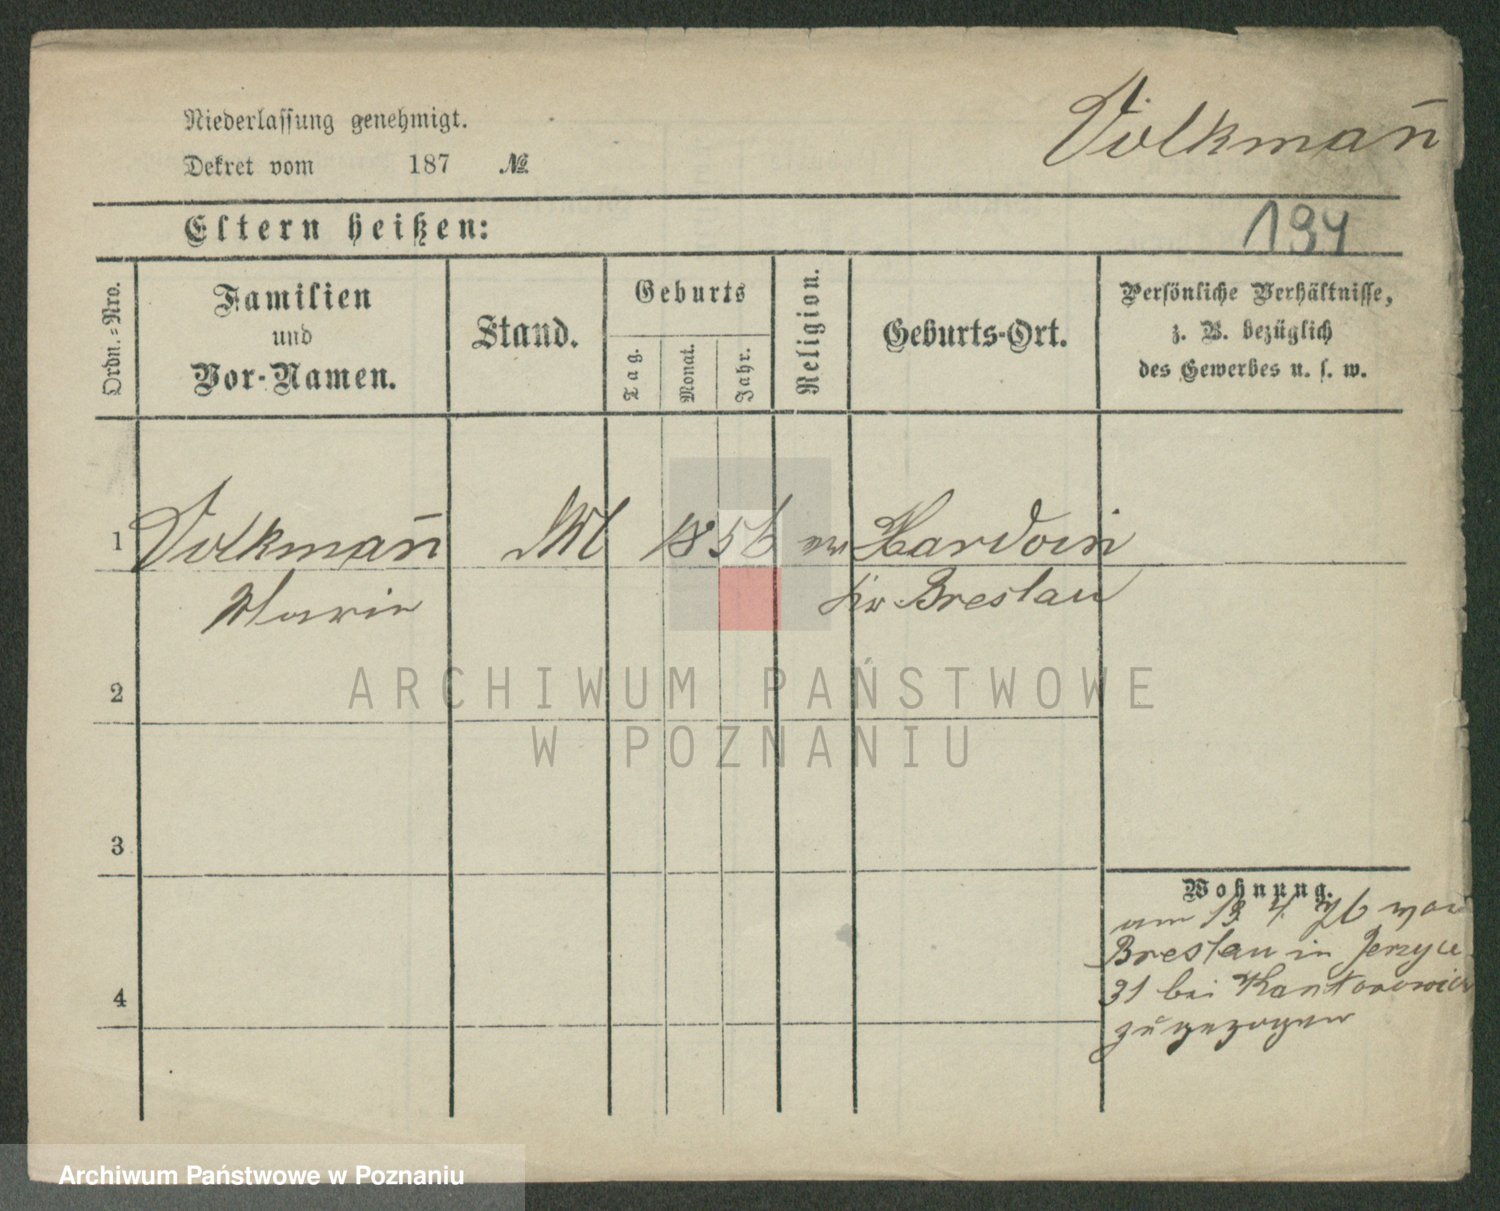 Niederlassung genehmigt.
Dekret vom 187 №
Volkman̄
194
Eltern heißen:
Ordn.-Nro.
Familien
und
Vor-Namen.
Stand.
Geburts
Tag.
Monat.
Jahr.
Religion.
Geburts-Ort.
Persönliche Verhältnisse,
z. B. bezüglich
des Gewerbes u. s. w.
1 Volkman̄ 1856 ev
Marie Kr Breslau
2
3
4
Wohnung.
am 13 4 76 von
Breslau in Jerzyce
31 bei Kantorowicz
zugezogen
ARCHIWUM PAŃSTWOWE
W POZNANIU
Archiwum Państwowe w Poznaniu